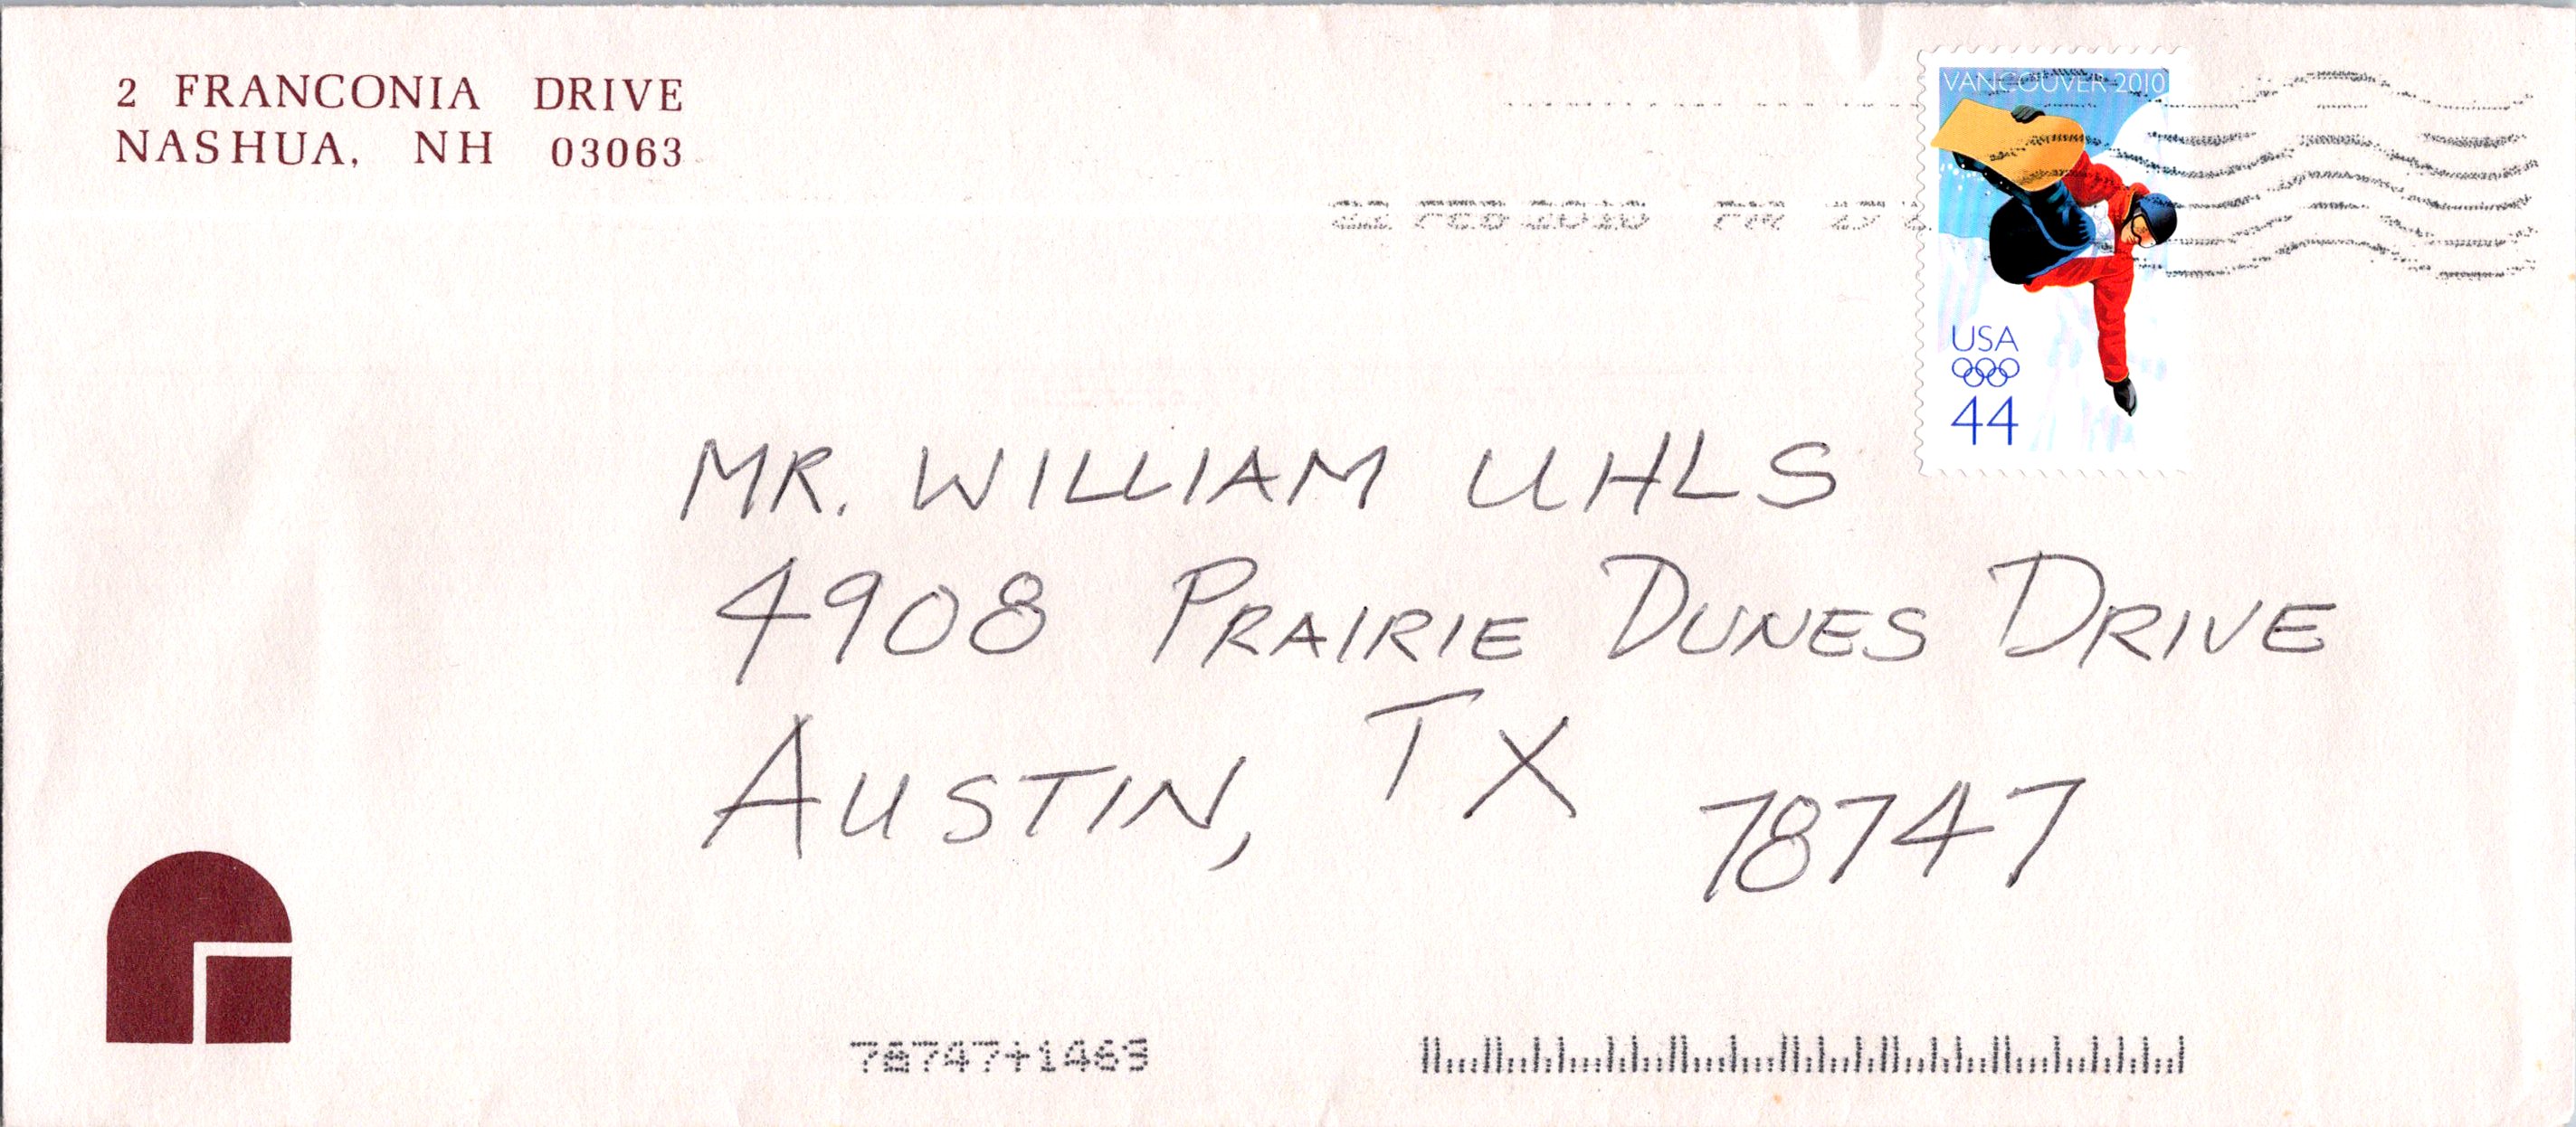 2 FRANCONIA DRIVE
NASHUA, NH 03063
VANCOUVER 2010
FEB 2010 PM
USA
44
MR. WILLIAM UHLS
4908 PRAIRIE DUNES DRIVE
AUSTIN, TX 78747
78747+1463